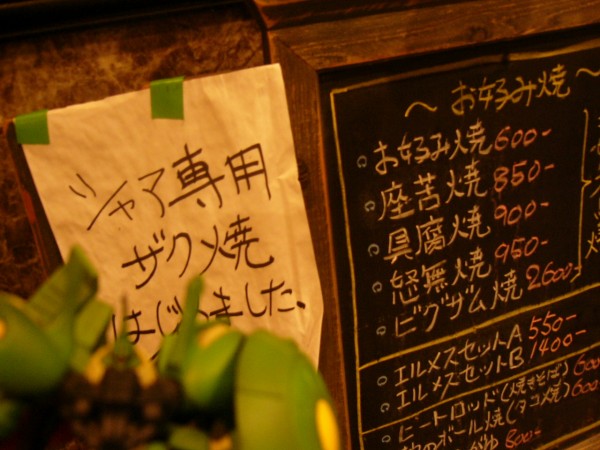 シャア専用
ザク焼
はじめました、
～お好み焼～
お好み焼 600-
座苦焼 850-
具腐焼 900-
怒無焼 950-
ビグザム焼 2600-
エルメスセットA 550-
エルメスセットB 1400-
ヒートロッド(焼きそば) 600
のボール焼(タコ焼) 600
800-